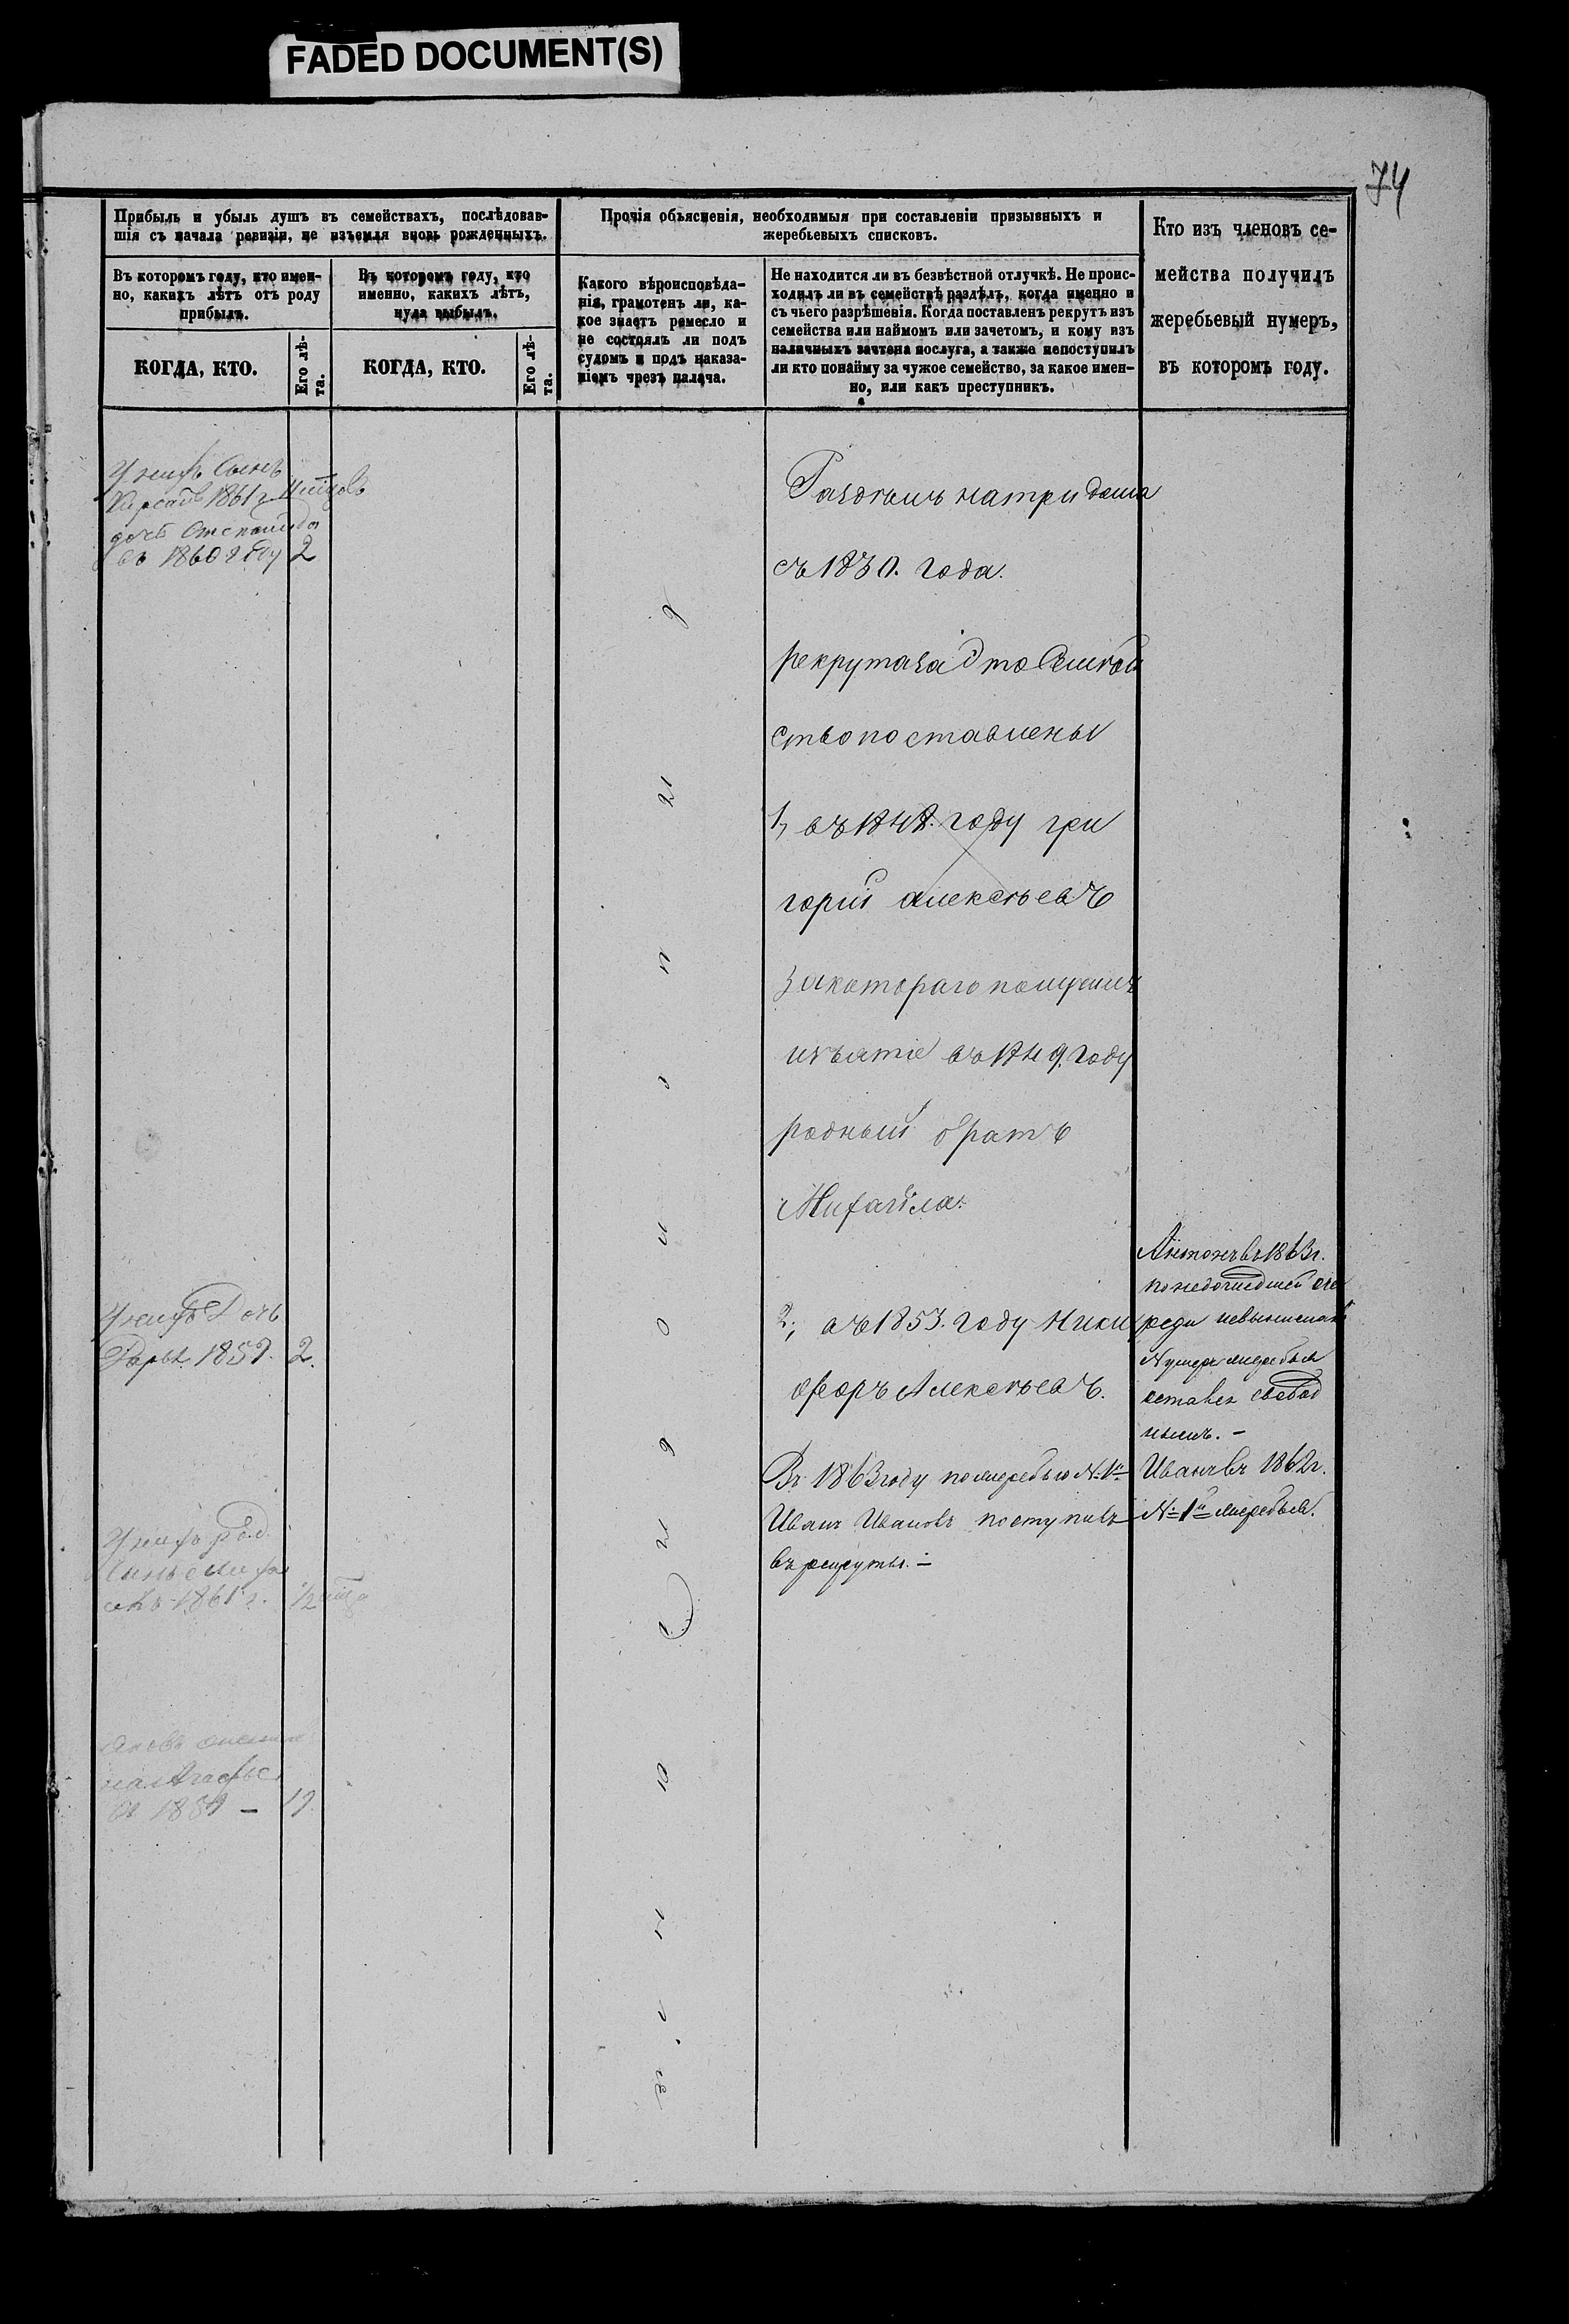 FADED DOCUMENT(S)
74
Прибыль и убыль душъ въ семействахъ, послѣдовав-
шія съ начала ревизіи, не изъемля вновь рожденныхъ.
Прочія объясненія, необходимыя при составленіи призывныхъ и
жеребьевыхъ списковъ.
Кто изъ членовъ се-
мейства получилъ
жеребьевый нумеръ,
въ которомъ году.
Въ которомъ году, кто имен-
но, какихъ лѣтъ отъ роду
прибылъ.
Въ которомъ году, кто
именно, какихъ лѣтъ,
куда выбылъ.
Какого вѣроисповѣда-
нія, грамотенъ ли, ка-
кое знаетъ ремесло и
не состоялъ ли подъ
судомъ и подъ наказа-
ніемъ чрезъ палача.
Не находится ли въ безвѣстной отлучкѣ. Не проис-
ходилъ ли въ семействѣ раздѣлъ, когда именно и
съ чьего разрѣшенія. Когда поставленъ рекрутъ изъ
семейства или наймомъ или зачетомъ, и кому изъ
наличныхъ зачтена послуга, а также непоступилъ
ли кто понайму за чужое семейство, за какое имен-
но, или какъ преступникъ.
КОГДА, КТО.
Его лѣ-
та.
КОГДА, КТО.
Его лѣ-
та.
У нихъ Сынъ
1861 г
дочь
въ 1860 году 2
У нихъ Дочь
Дарья 1859. 2.
У нихъ род.
Сынъ
1861 г. 1/2
Яковъ
на
19
Раздѣлъ на три дома
съ 1830. года.
рекрута за это Семей
ство поставлены
1, въ 1848. году Гри
горій Алексѣевъ
за котораго
въ 1849. году
родный братъ
Михаіла.
2, въ 1853. году Ники
форъ Алексѣевъ.
Въ 1863 году по жеребью № 1й
Иванъ Ивановъ поступилъ
въ рекруты. –
Антонъ въ 1863 г.
по недошедшей оче
реди невынималъ
Нумеръ жеребья
оставленъ свобод
нымъ. –
Иванъ въ 1862 г.
№ 1й жеребья.